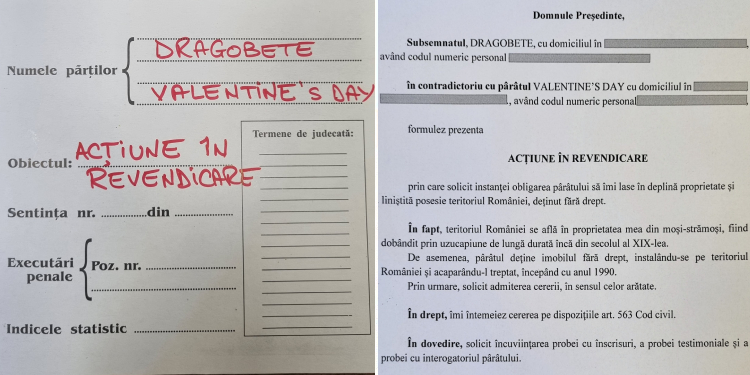 DRAGOBETE
Numele părților
VALENTINE'S DAY
Obiectul: ACȚIUNE ÎN
REVENDICARE
Termene de judecată:
Sentința nr. ............... din ...............
Executări
penale
Poz. nr. ...............
Indicele statistic ...............
Domnule Președinte,
Subsemnatul, DRAGOBETE, cu domiciliul în
având codul numeric personal
în contradictoriu cu pârâtul VALENTINE'S DAY cu domiciliul în
, având codul numeric personal
formulez prezenta
ACȚIUNE ÎN REVENDICARE
prin care solicit instanței obligarea pârâtului să îmi lase în deplină proprietate și
liniștită posesie teritoriul României, deținut fără drept.
În fapt, teritoriul României se află în proprietatea mea din moși-strămoși, fiind
dobândit prin uzucapiune de lungă durată încă din secolul al XIX-lea.
De asemenea, pârâtul deține imobilul fără drept, instalându-se pe teritoriul
României și acaparându-l treptat, începând cu anul 1990.
Prin urmare, solicit admiterea cererii, în sensul celor arătate.
În drept, îmi întemeiez cererea pe dispozițiile art. 563 Cod civil.
În dovedire, solicit încuviințarea probei cu înscrisuri, a probei testimoniale și a
probei cu interogatoriul pârâtului.